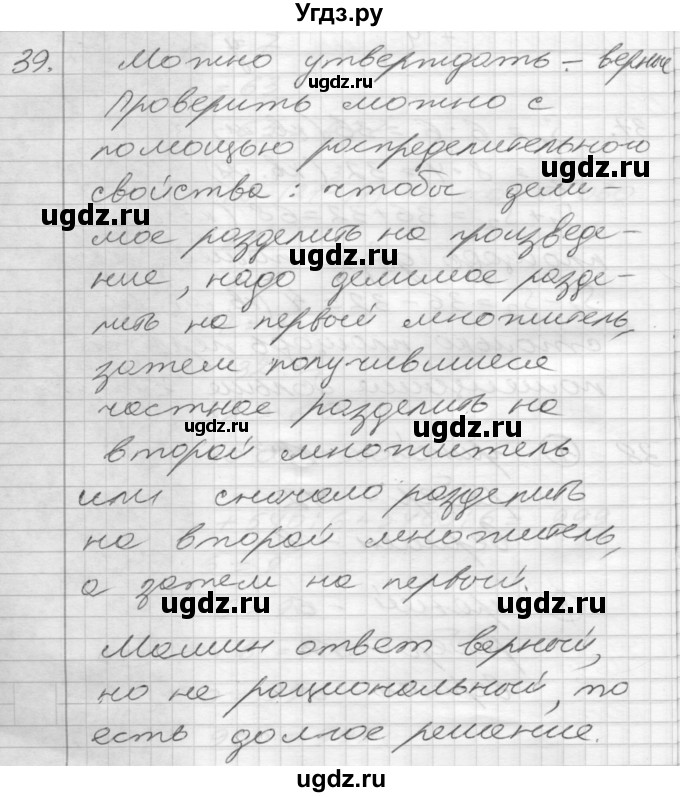 Угдз.ру
39. Можно утверждать - верные
ugdz.ru
Проверить можно с
помощью распределительного
ugdz.ru
свойства: чтобы дели-
ugdz.ru
мое разделить на произведе-
ugdz.ru
ние, надо делимое разде-
лить на первый множитель,
ugdz.ru
затем получившиеся
частное разделить на
ugdz.ru
второй множитель
ugdz.ru
или сначало разделить
на второй множитель,
а затем на первый.
ugdz.ru
ugdz.ru
Машин ответ верный,
ugdz.ru
но не рациональный, то
есть долгое решение.
ugdz.ru